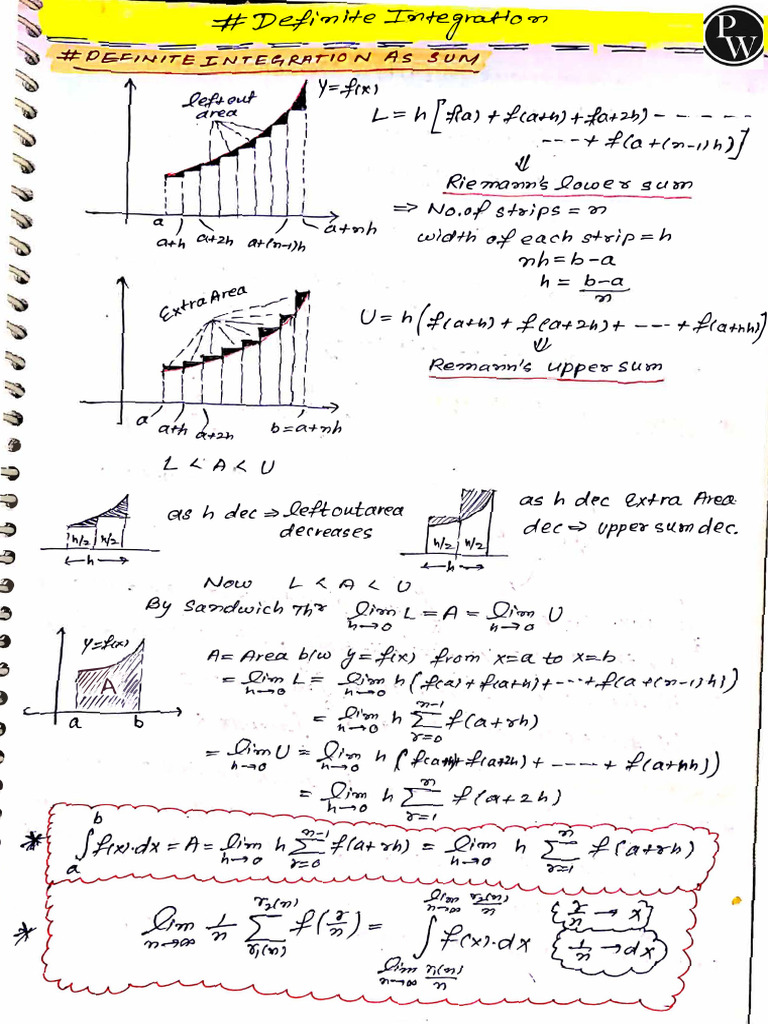 # Definite Integration
PW
# DEFINITE INTEGRATION AS SUM
left out
area
Y = f(x)
L = h[f(a) + f(a+h) + f(a+2h) - - - - - -
- - - + f(a+(n-1)h)]
⇓
Riemann's lower sum
⇒ No. of strips = n
width of each strip = h
nh = b-a
h = b-a/n
a
a+h
a+2h
a+(n-1)h
a+nh
Extra Area
U = h(f(a+h) + f(a+2h) + --- + f(a+nh))
⇓
Remann's upper sum
a
a+h
a+2h
b=a+nh
L < A < U
as h dec ⇒ left out area
decreases
h/2 h/2
h
as h dec Extra Area
dec ⇒ upper sum dec.
h/2 h/2
h
Now L < A < U
By Sandwich Thr lim h→0 L = A = lim h→0 U
Y=f(x)
A
a b
A = Area b/w y=f(x) from x=a to x=b
= lim h→0 L = lim h→0 h(f(a)+f(a+h)+---+f(a+(n-1)h))
= lim h→0 h ∑ r=0 n-1 f(a+rh)
= lim h→0 U = lim h→0 h(f(a+h)+f(a+2h)+----+f(a+nh))
= lim h→0 h ∑ r=1 n f(a+2h)
* ∫ a b f(x)·dx = A = lim h→0 h ∑ r=0 n-1 f(a+rh) = lim h→0 h ∑ r=1 n f(a+rh)
* lim n→∞ 1/n ∑ r1(n) r2(n) f(r/n) = ∫ lim n→∞ r1(n)/n lim n→∞ r2(n)/n f(x)·dx
{r/n → x}
1/n → dx